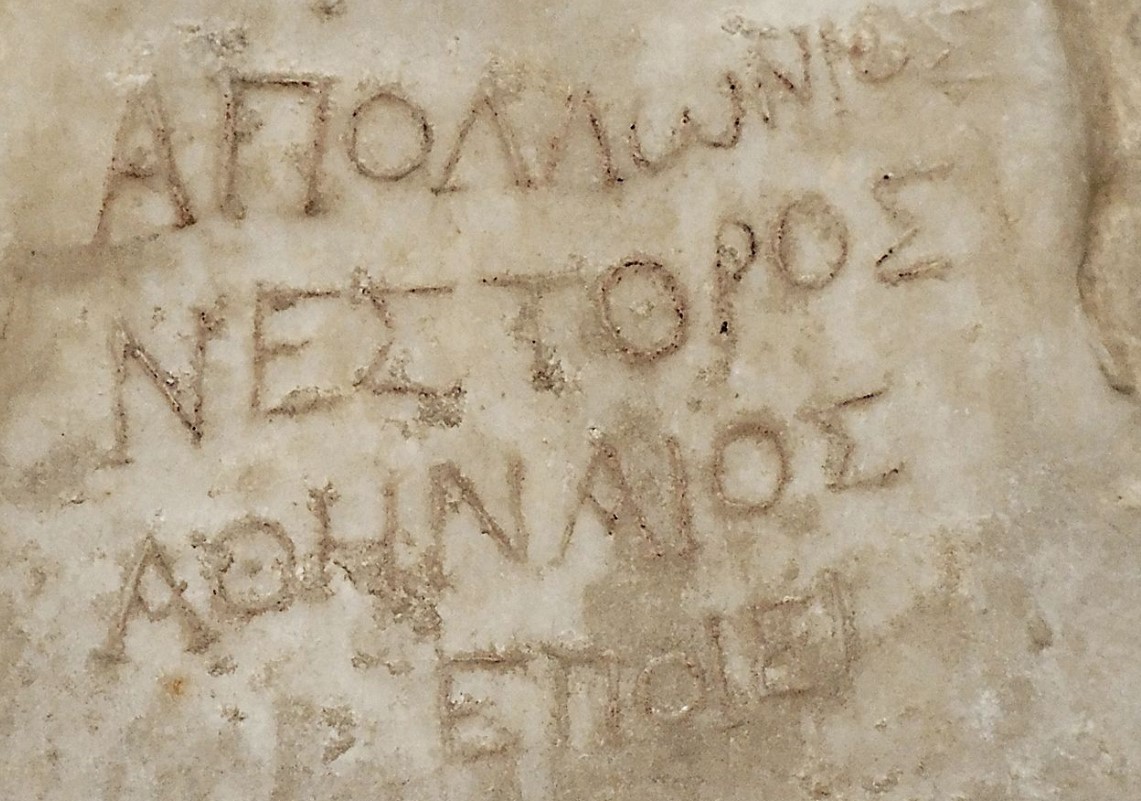 ΑΠΟΛΛωΝΙΟΣ
ΝΕΣΤΟΡΟΣ
ΑΘΗΝΑΙΟΣ
ΕΠΟΙΕΙ